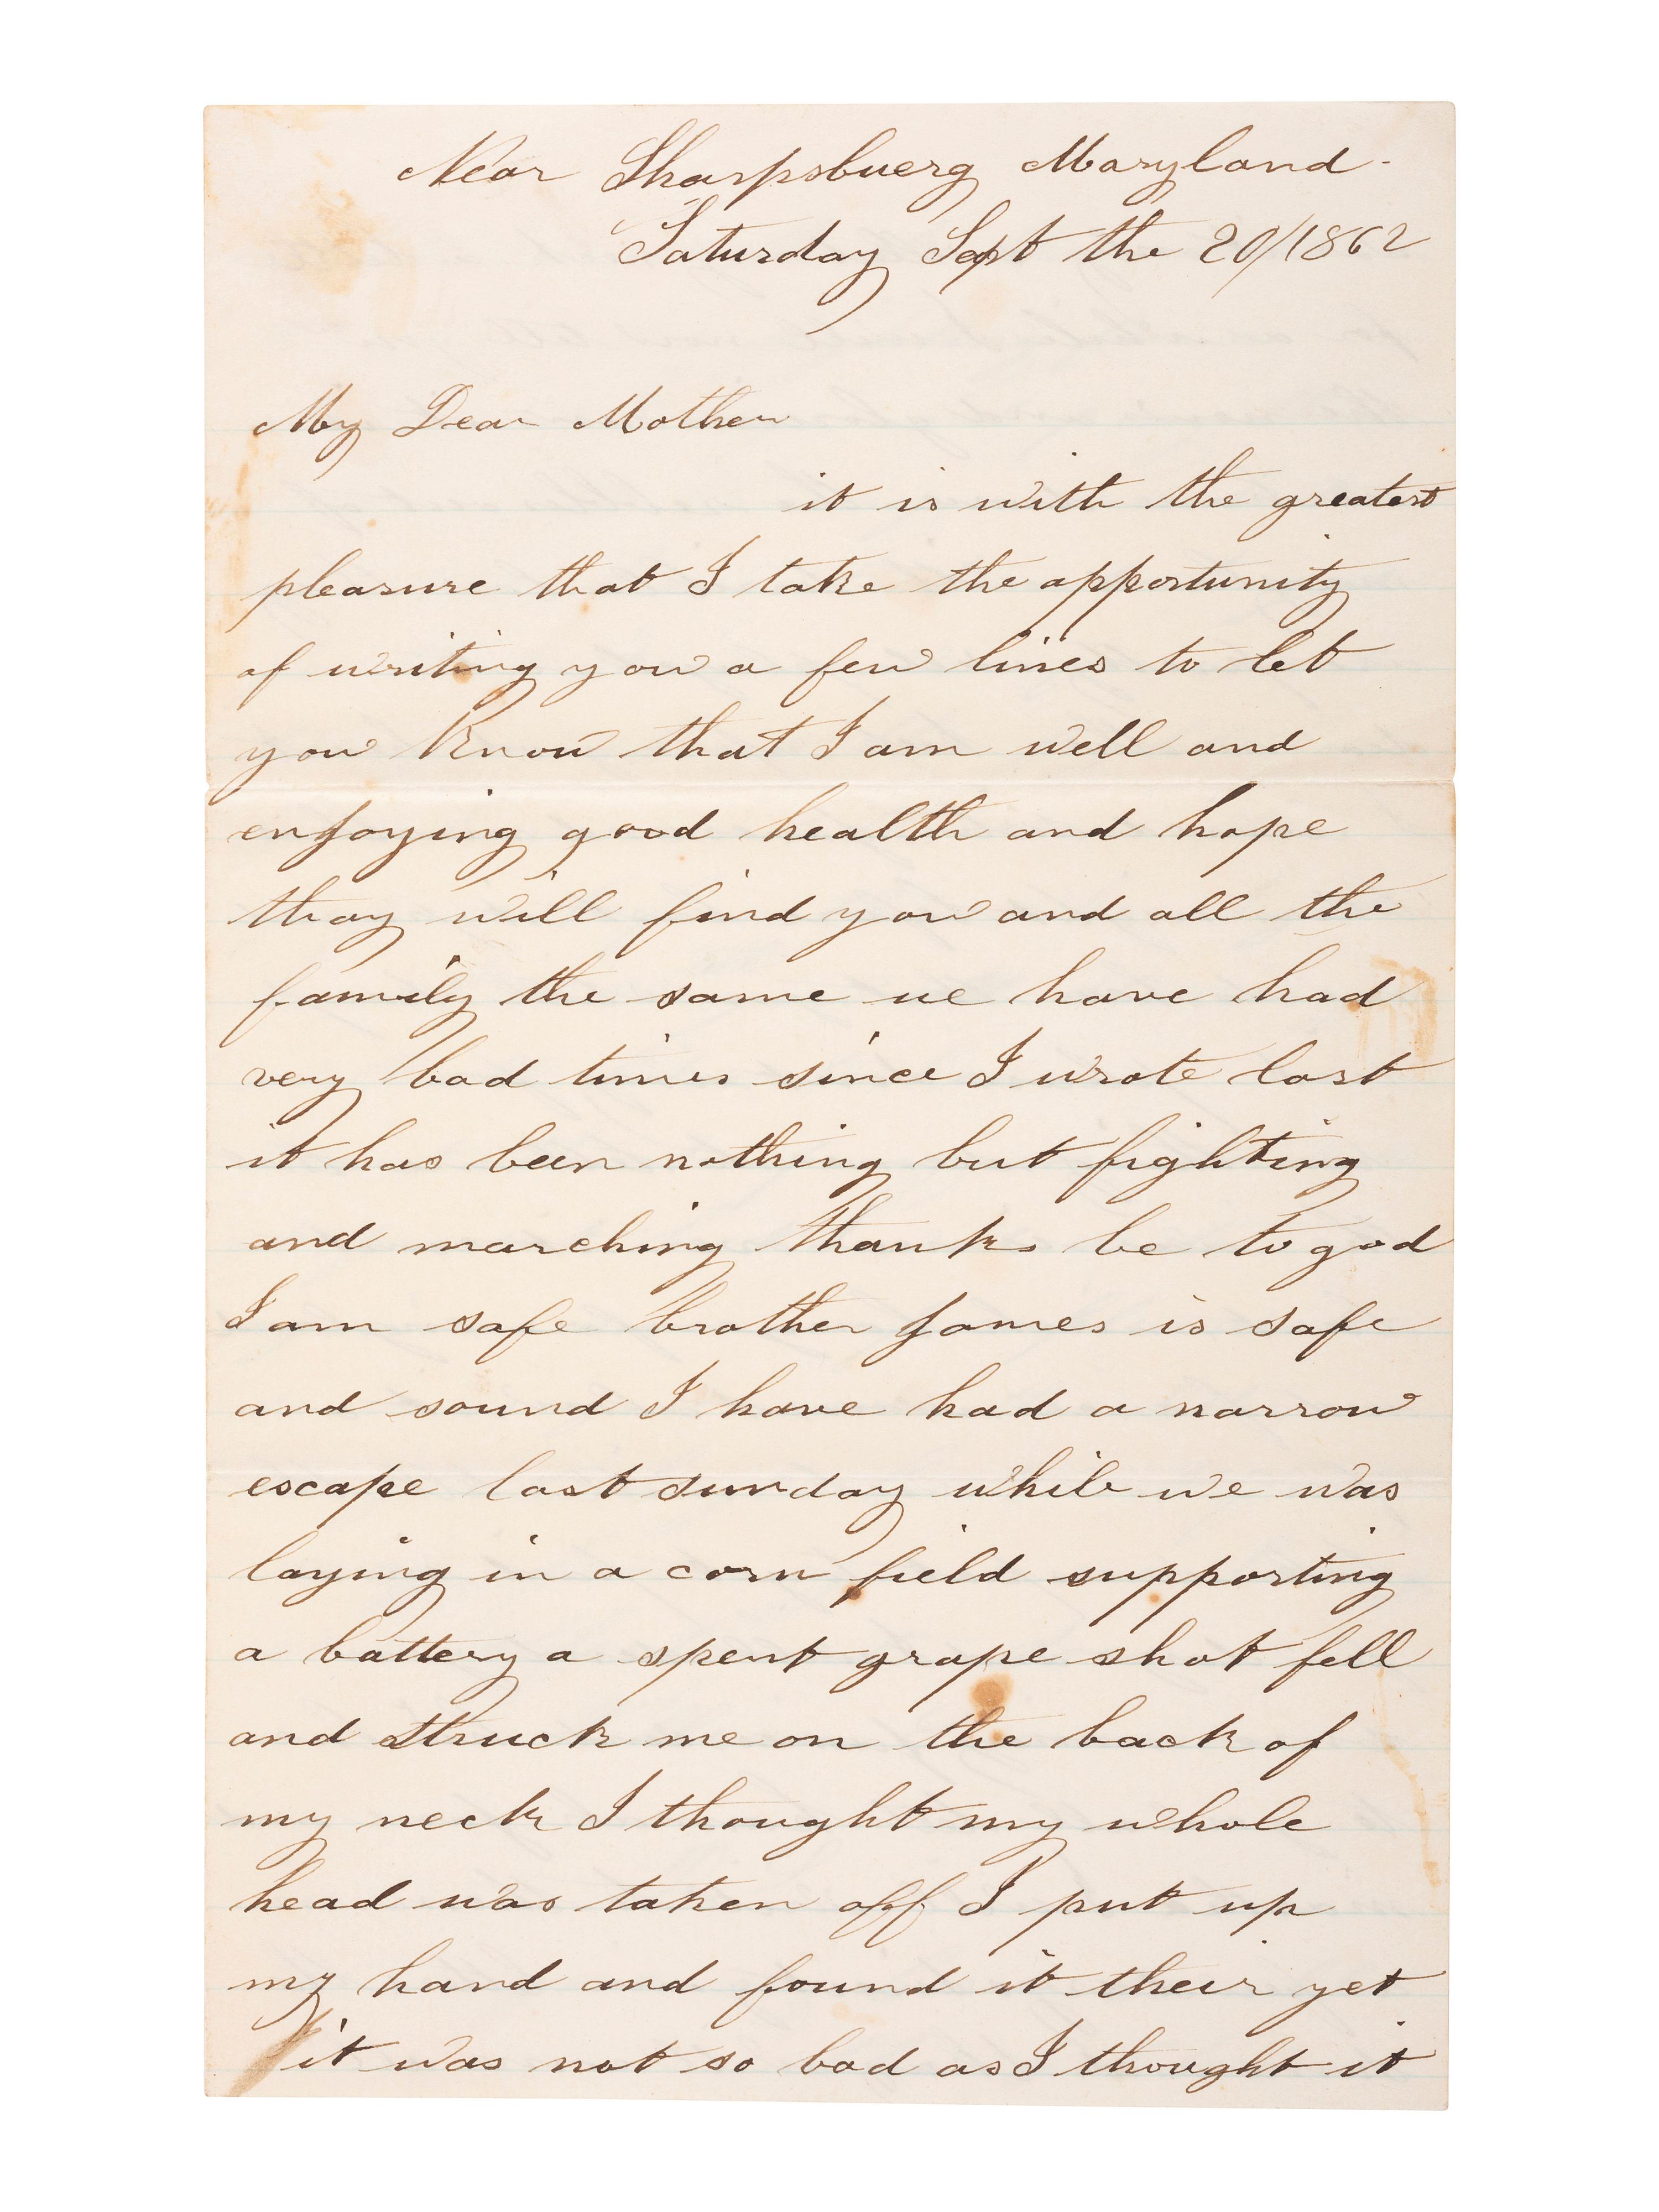 Near Sharpsbuerg Maryland -
Saturday Sept the 20/1862
My Dear Mother
it is with the greatest
pleasure that I take the opportunity
of writing you a few lines to let
you know that I am well and
enjoying good health and hope
thay will find you and all the
family the same we have had
very bad times since I wrote last
it has been nothing but fighting
and marching thanks be to god
I am safe brother James is safe
and sound I have had a narrow
escape last sunday while we was
laying in a corn field supporting
a battery a spent grape shot fell
and struck me on the back of
my neck I thought my whole
head was taken off I put up
my hand and found it their yet
it was not so bad as I thought it